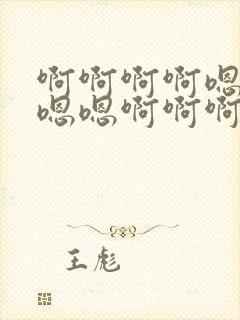 啊啊啊啊嗯
嗯嗯啊啊啊
王彪